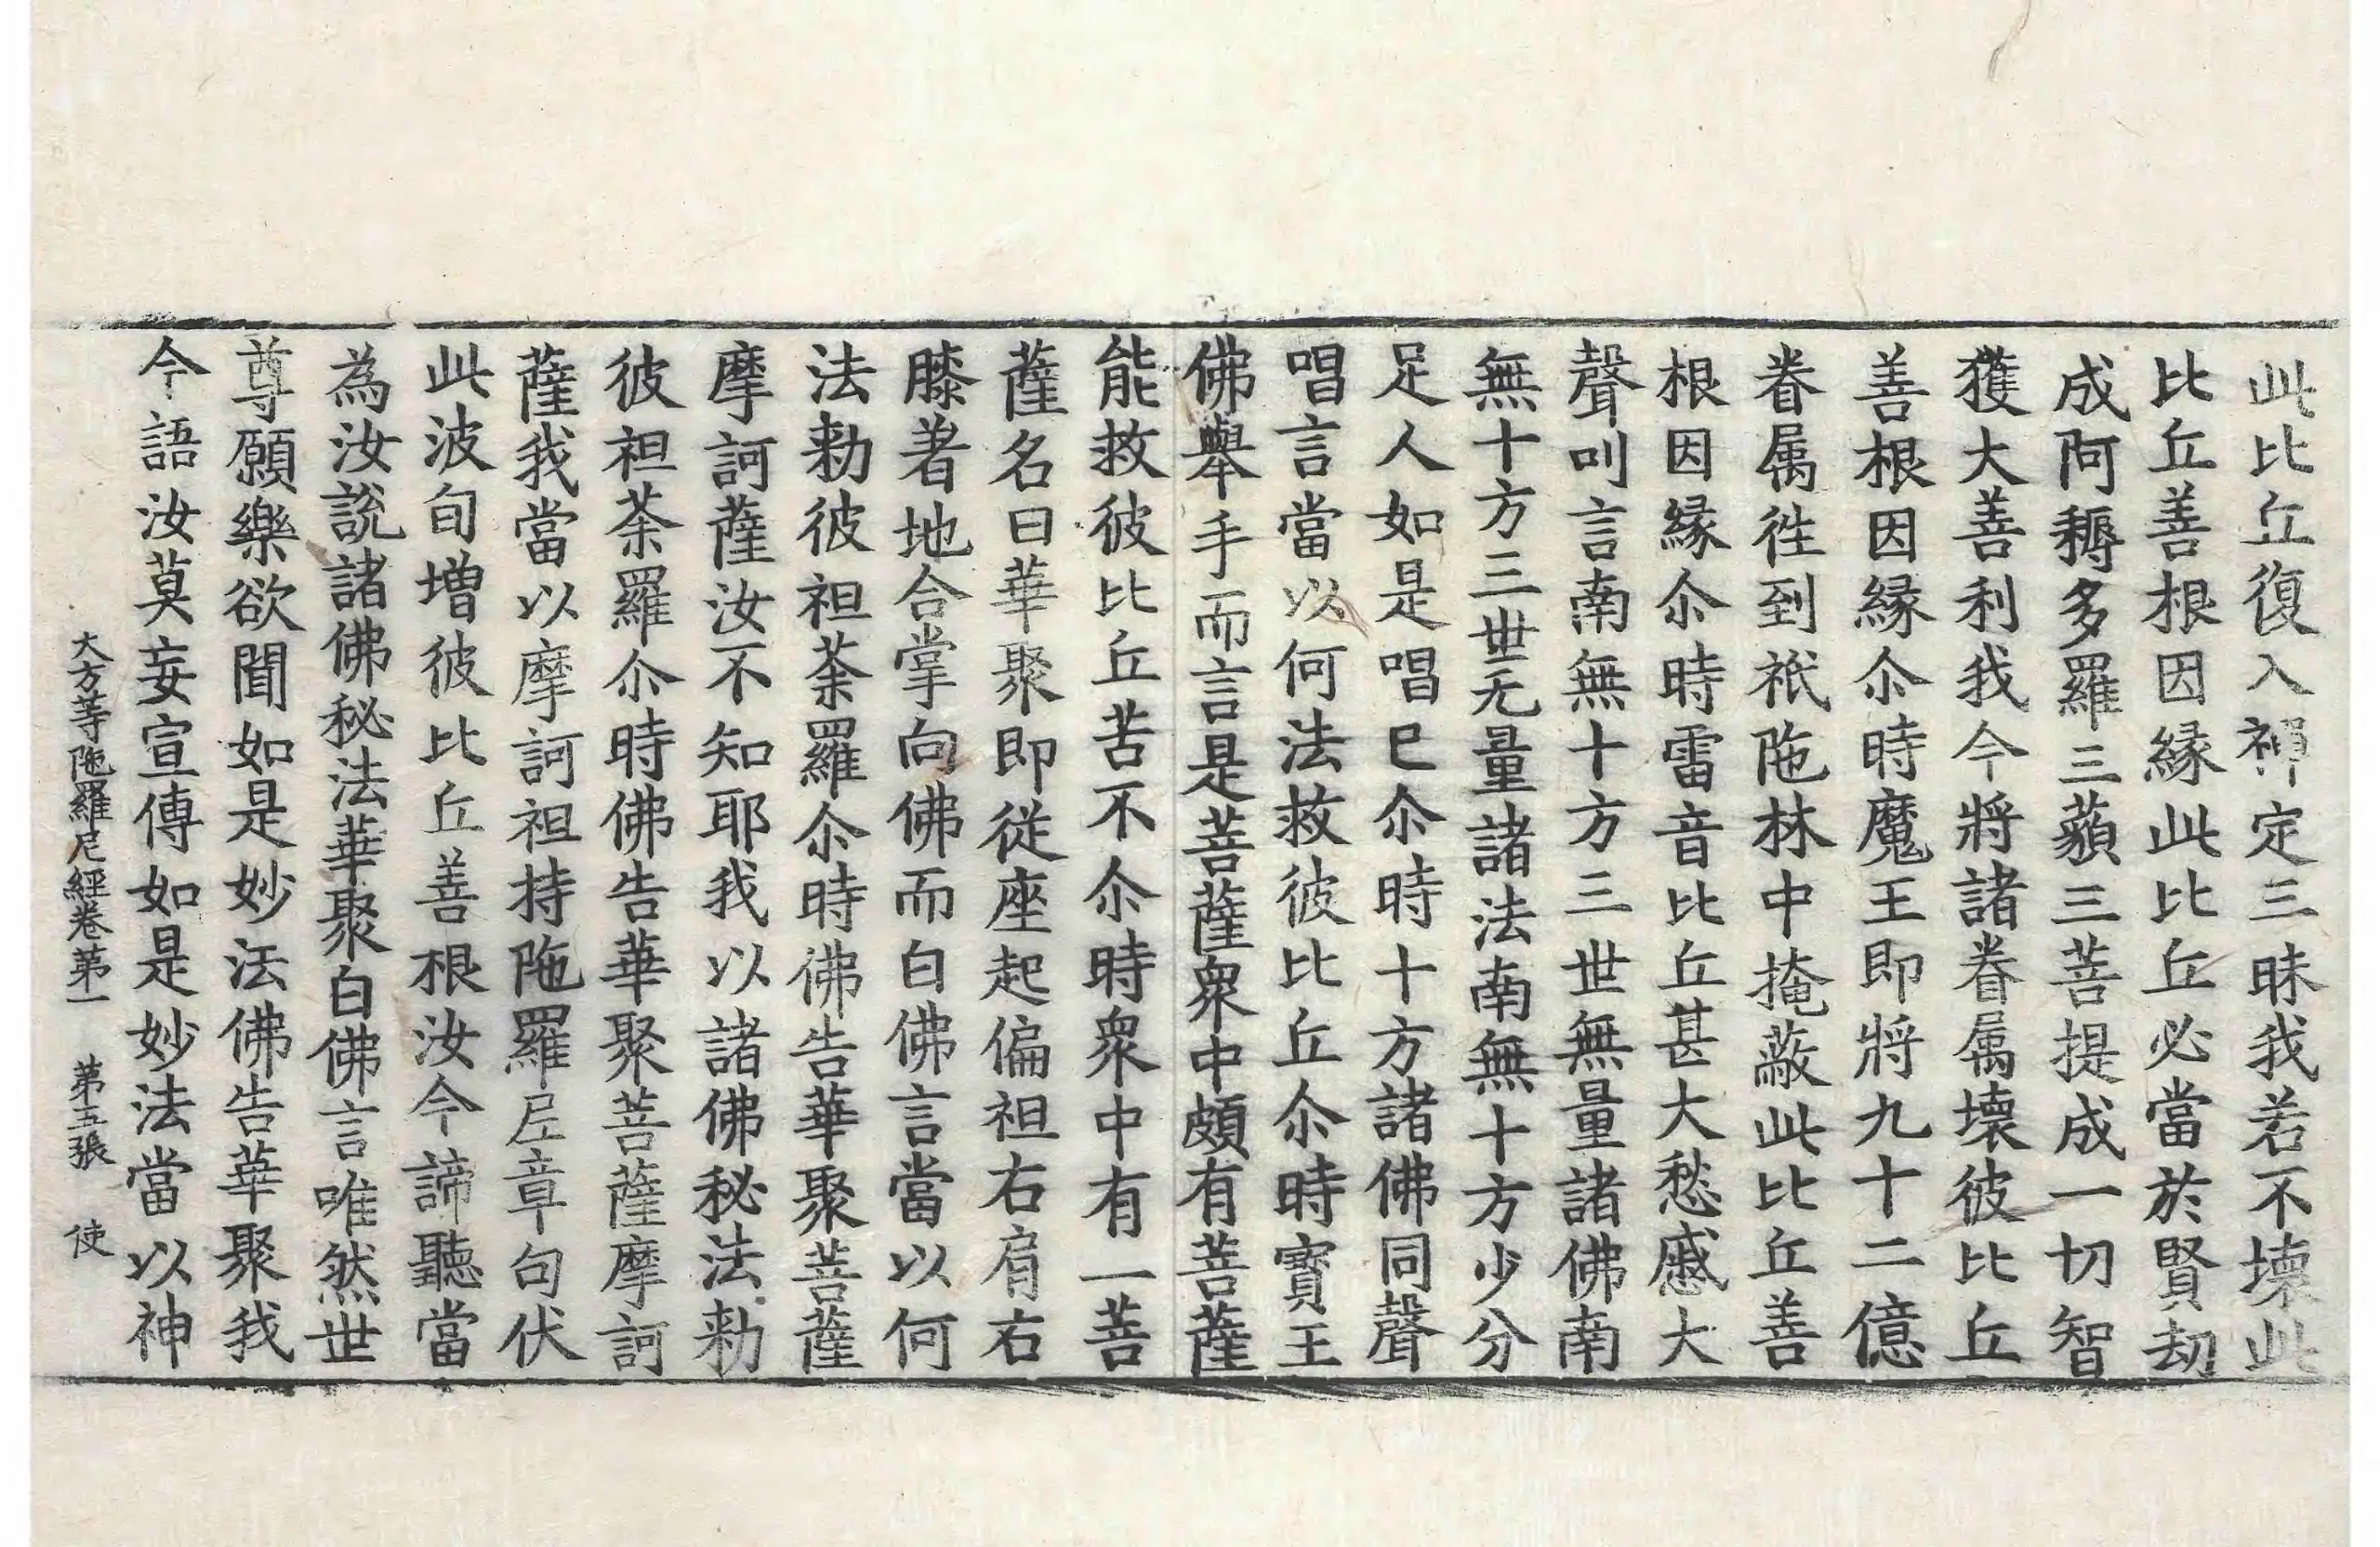 此比丘復入禪定三昧我若不壞此
比丘善根因縁此比丘必當於賢劫
成阿耨多羅三藐三菩提成一切智
獲大善利我今將諸眷属壞彼比丘
善根因縁尒時魔王即將九十二億
眷属徃到祇陁林中掩蔽此比丘善
根因縁尒時雷音比丘甚大愁慼大
聲叫言南無十方三世無量諸佛南
無十方三世无量諸法南無十方少分
足人如是唱巳尒時十方諸佛同聲
唱言當以何法救彼比丘尒時寳王
佛舉手而言是菩薩衆中頗有菩薩
能救彼比丘苦不尒時衆中有一菩
薩名曰華聚即從座起偏袒右肩右
膝着地合掌向佛而白佛言當以何
法勑彼袒荼羅尒時佛告華聚菩薩
摩訶薩汝不知耶我以諸佛秘法勑
彼袒荼羅尒時佛告華聚菩薩摩訶
薩我當以摩訶袒持陁羅尼章句伏
此波旬增彼比丘善根汝今諦聽當
為汝說諸佛秘法華聚白佛言唯然世
尊願樂欲聞如是妙法佛告華聚我
今語汝莫妄宣傳如是妙法當以神
大方等陁羅尼經卷第一　第五張　使